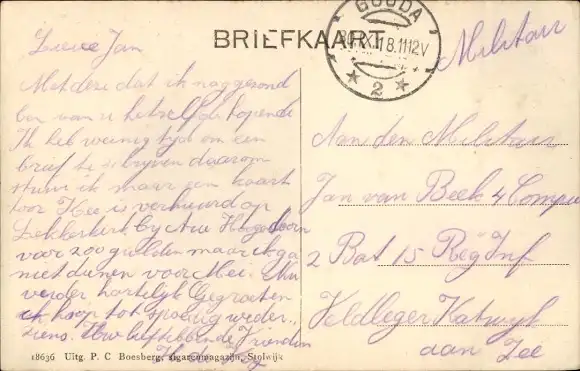 GOUDA
BRIEFKAART
2
Militair
Lieve Jan
Met deze dat ik nog gezond
ben van u hetzelfde hopende
Ik heb weinig tijd om een
brief te schrijven daarom
stuur ik maar een kaart
is verhuurd op
Lekkerkerk by
voor 200 gulden maar ik ga
niet dienen voor Mei.
verder hartelijk Gegroeten
ik hoop tot spoedig weder
ziens. Uw liefhebbende Vriendin
Aan den Militair
Jan van Beek 4 Comp
2 Bat 15 Reg Inf
Veldleger Katwyk
aan Zee
18636 Uitg. P. C Boesberg, sigarenmagazijn, Stolwijk